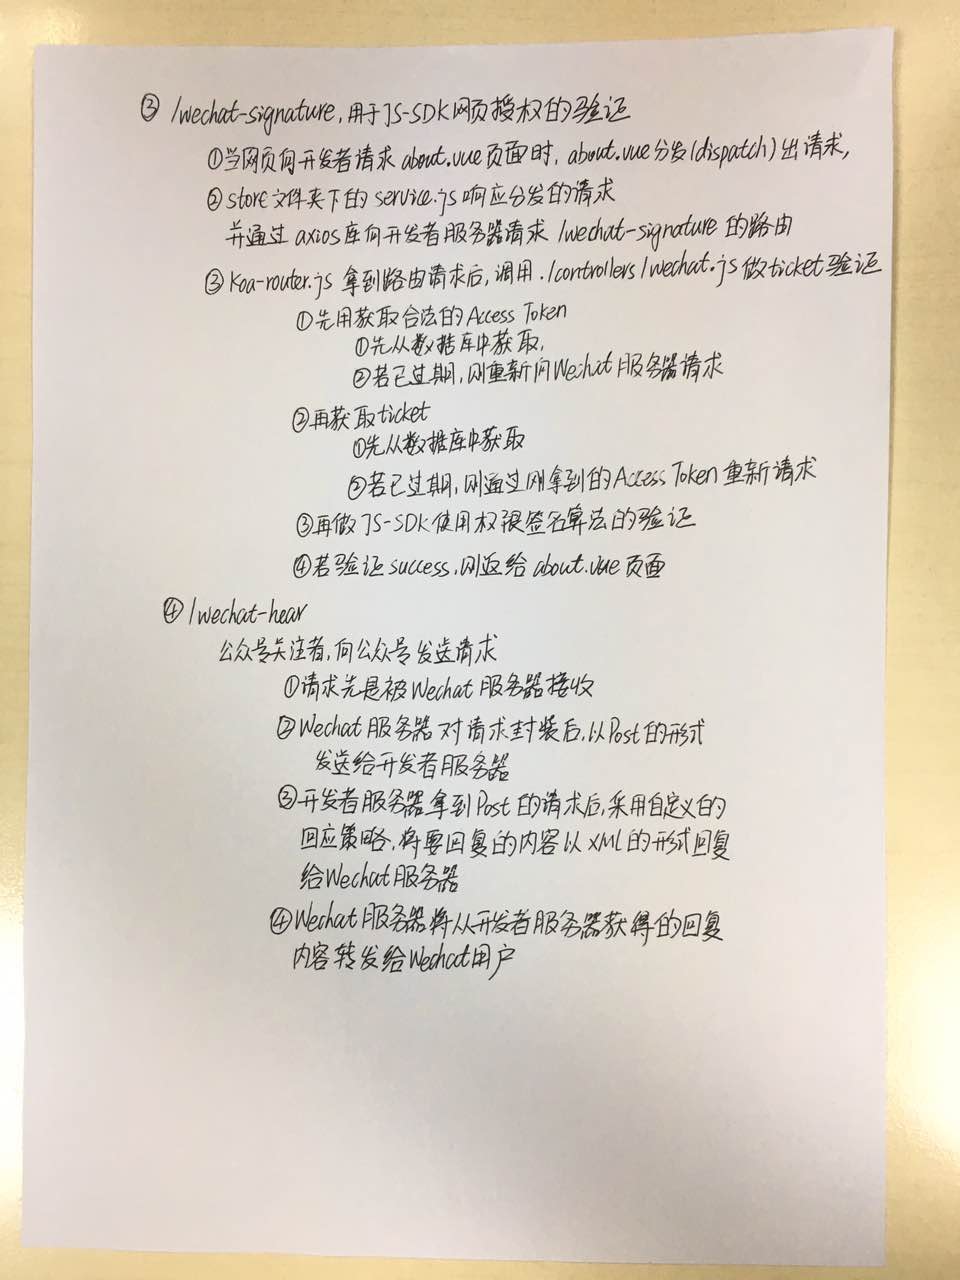 ③ /wechat-signature,用于JS-SDK网页授权的验证
①当网页向开发者请求 about.vue页面时, about.vue分发(dispatch)出请求,
②store文件夹下的 service.js响应分发的请求
并通过 axios库向开发者服务器请求 /wechat-signature 的路由
③Koa-router.js 拿到路由请求后,调用 ./controllers/wechat.js做ticket验证
①先用获取合法的Access Token
①先从数据库中获取,
②若已过期,则重新向Wechat服务器请求
②再获取ticket
①先从数据库中获取
②若已过期,则通过刚拿到的Access Token重新请求
③再做JS-SDK使用权限签名算法的验证
④若验证success,则返给about.vue页面
④ /wechat-hear
公众号关注者,向公众号发送请求
①请求先是被Wechat服务器接收
②Wechat服务器对请求封装后,以Post的形式
发送给开发者服务器
③开发者服务器拿到Post的请求后,采用自定义的
回应策略,将要回复的内容以XML的形式回复
给Wechat服务器
④Wechat服务器将从开发者服务器获得的回复
内容转发给Wechat用户